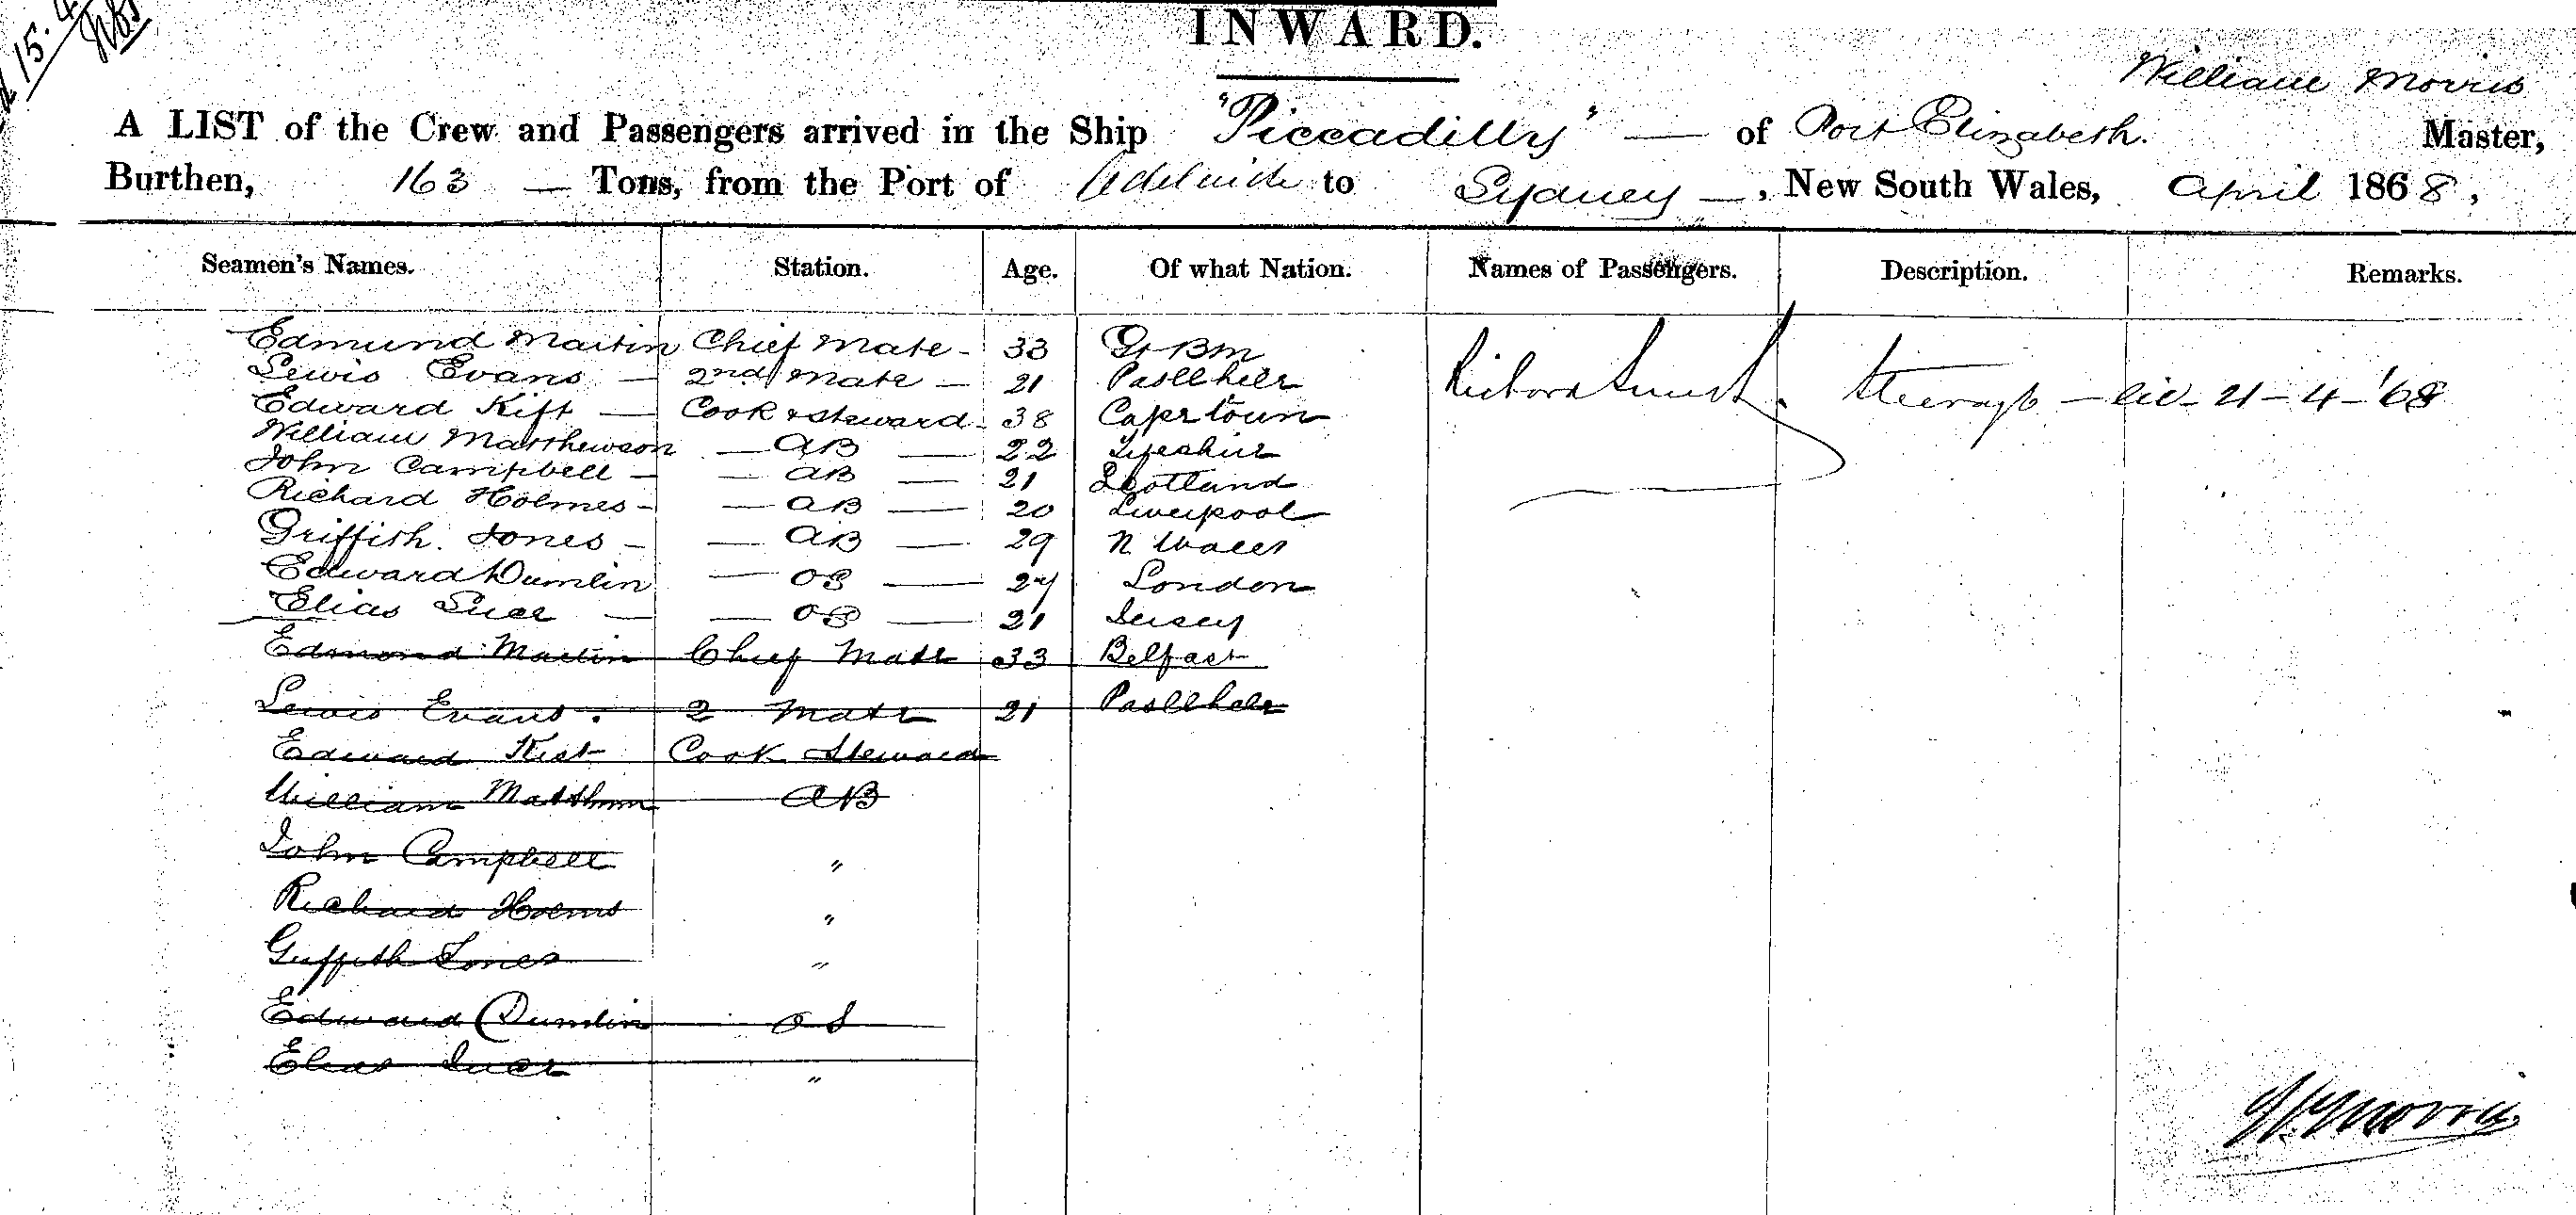 15. 4
INWARD.
William Morris
A LIST of the Crew and Passengers arrived in the Ship "Piccadilly" — of Port Elizabeth. Master,
Burthen, 163 — Tons, from the Port of Adelaide to Sydney —, New South Wales, April 1868,
Seamen's Names. Station. Age. Of what Nation. Names of Passengers. Description. Remarks.
Edmund Martin Chief Mate - 33
Lewis Evans — 2nd Mate — 21 Pasllheler
Edward Kift — Cook & Steward - 38 Cape town
William Matthewson — AB — 22
John Campbell — — AB — 21 Scotland
Richard Holmes - — AB — 20 Liverpool
Griffith. Jones - — AB — 29 N. Wales
Edward Dumlin — OS — 24 London
Elias — — OS — 21 Jersey
Richard Steerage — 21-4-'68
Edmond Martin Chief Mate 33 Belfast
Lewis Evans. 2 Mate 21 Pasllheler
Edward Kist Cook Steward
William AB
John Campbell "
Richard Holms "
Griffith Jones "
Edward Dumlin OS
Elias "
W. Morris